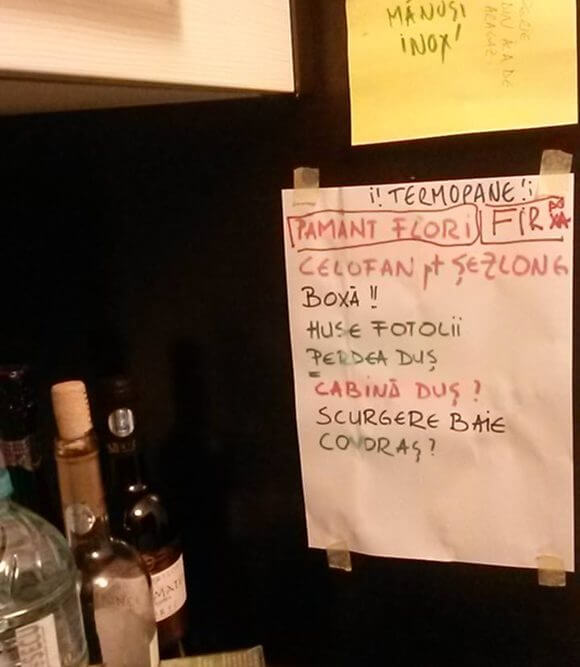 MĂNUȘI
INOX!
ARAGAZ!
¡! TERMOPANE !¡
PAMANT FLORI FIR
CELOFAN pt ȘEZLONG
BOXĂ !!
HUSE FOTOLII
PERDEA DUȘ
CABINĂ DUȘ ?
SCURGERE BAIE
COVORAȘ ?
MATE